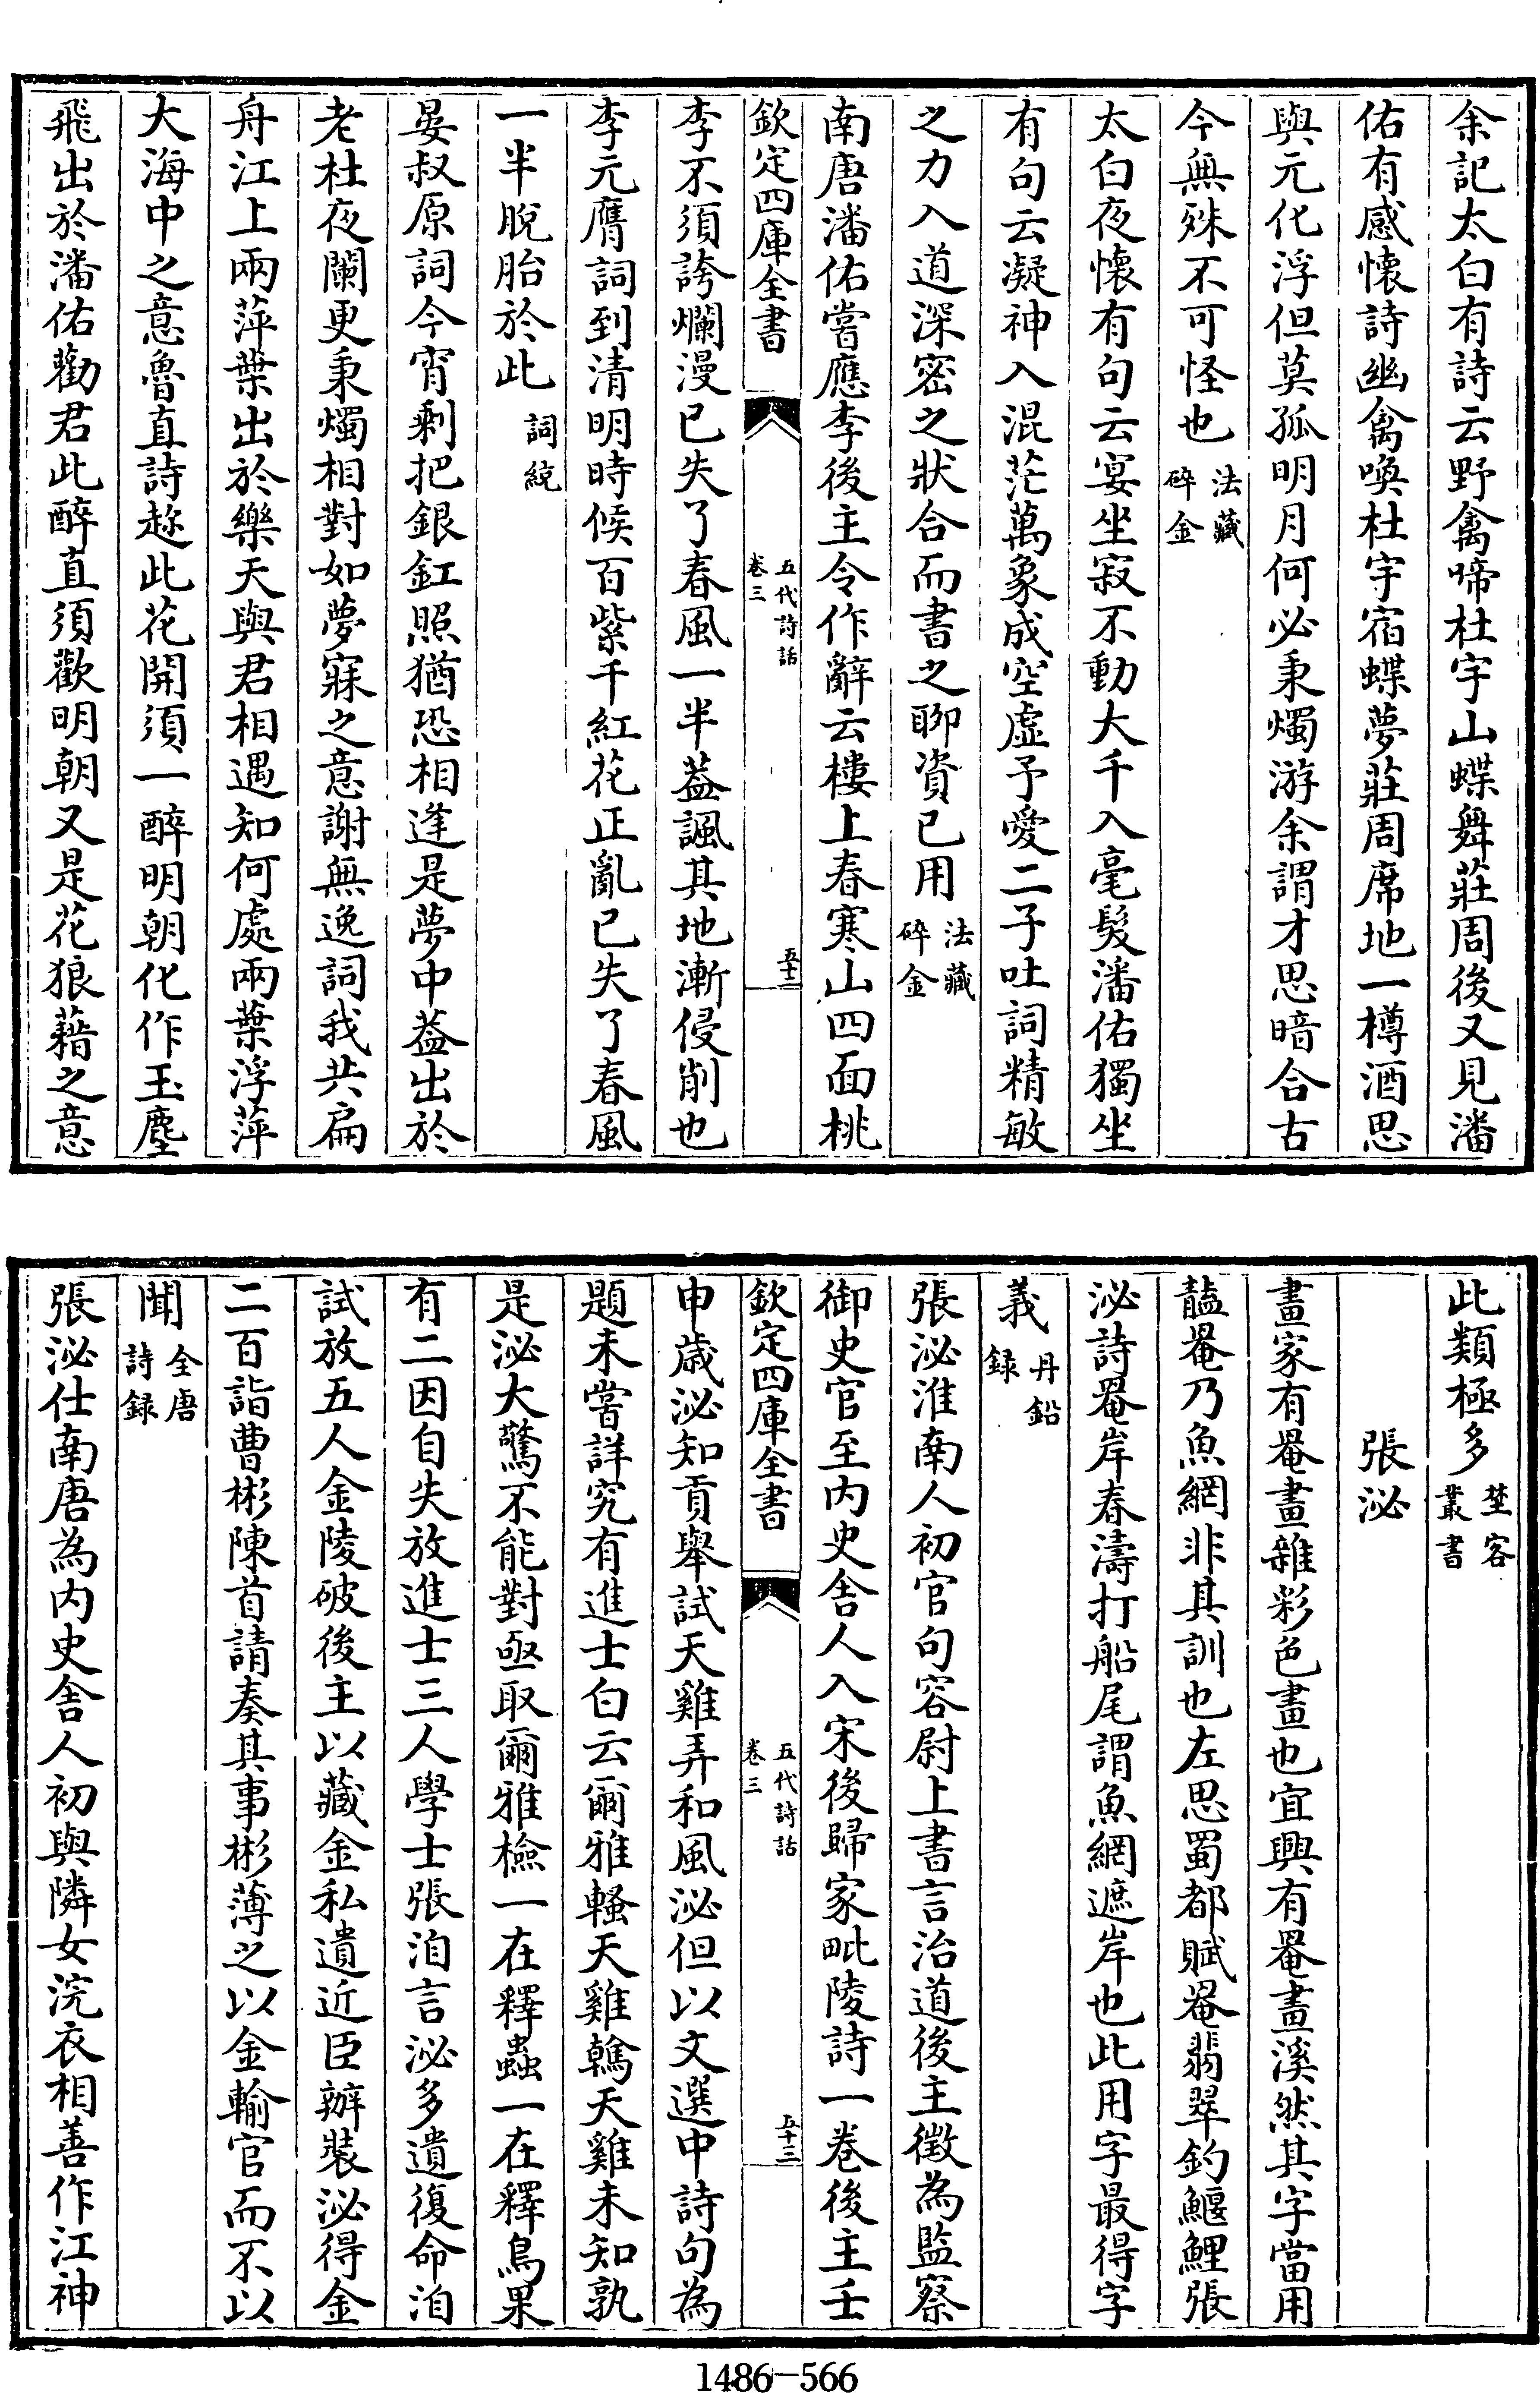 余記太白有詩云野禽啼杜宇山蝶舞莊周後又見潘
佑有感懷詩幽禽喚杜宇宿蝶夢莊周席地一樽酒思
與元化浮但莫孤明月何必秉燭游余謂才思暗合古
今無殊不可怪也法藏碎金
太白夜懷有句云宴坐寂不動大千入毫髮潘佑獨坐
有句云凝神入混茫萬象成空虛予愛二子吐詞精敏
之力入道深密之狀合而書之聊資已用法藏碎金
南唐潘佑嘗應李後主令作辭云樓上春寒山四面桃
欽定四庫全書 五代詩話卷三 五十二
李不須誇爛漫已失了春風一半葢諷其地漸侵削也
李元膺詞到清明時候百紫千紅花正亂已失了春風
一半脫胎於此詞綂
晏叔原詞今宵剩把銀釭照猶恐相逢是夢中葢出於
老杜夜闌更秉燭相對如夢寐之意謝無逸詞我共扁
舟江上兩萍葉出於樂天與君相遇知何處兩葉浮萍
大海中之意魯直詩趂此花開須一醉明朝化作玉塵
飛出於潘佑勸君此醉直須歡明朝又是花狼藉之意
此類極多埜客叢書
張泌
畫家有罨畫雜彩色畫也宜興有罨畫溪然其字當用
䤃罨乃魚網非其訓也左思蜀都賦罨翡翠釣鰋鯉張
泌詩罨岸春濤打船尾謂魚網遮岸也此用字最得字
義丹鉛録
張泌淮南人初官句容尉上書言治道後主徵為監察
御史官至内史舍人入宋後歸家毗陵詩一卷後主壬
欽定四庫全書 五代詩話卷三 五十三
申歳泌知貢舉試天雞弄和風泌但以文選中詩句為
題未嘗詳究有進士白云爾雅螒天雞鶾天雞未知孰
是泌大驚不能對亟取爾雅檢一在釋蟲一在釋鳥果
有二因自失放進士三人學士張洎言泌多遺復命洎
試放五人金陵破後主以藏金私遺近臣辦裝泌得金
二百詣曹彬陳首請奏其事彬薄之以金輸官而不以
聞全唐詩録
張泌仕南唐為内史舍人初與隣女浣衣相善作江神
1486-566